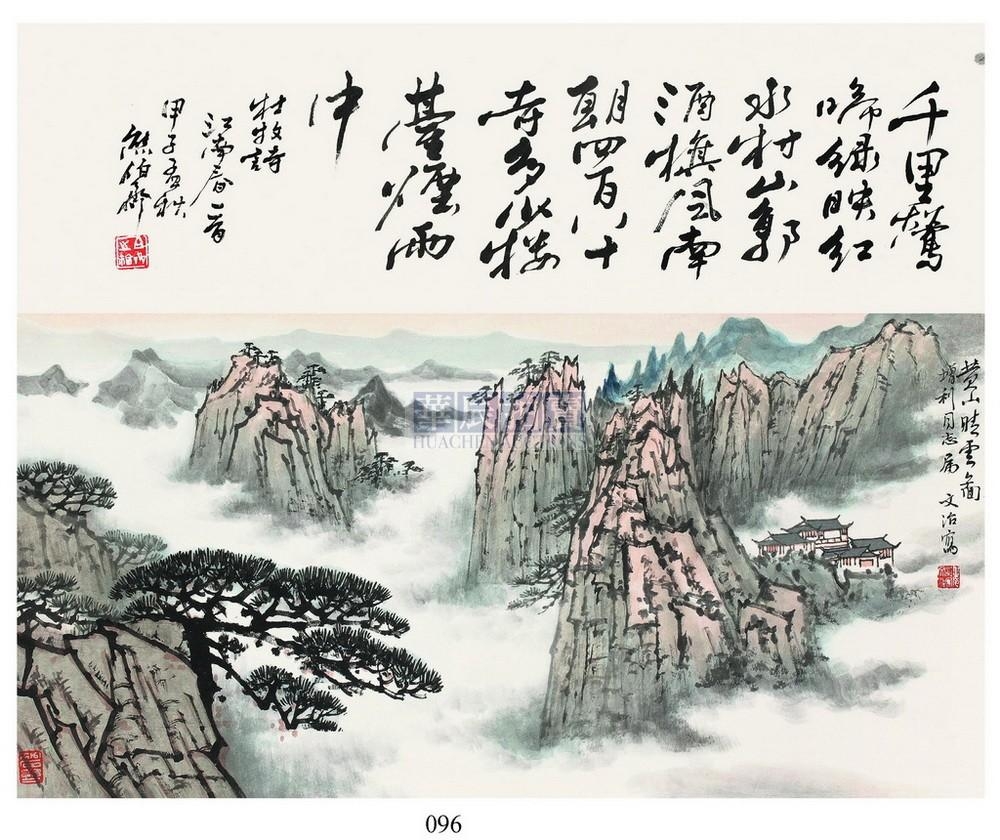 千里鶯
啼绿映红
水村山郭
酒旗风南
朝四百八十
寺多少楼
臺煙雨
中
杜牧詩
江南春一首
甲子孟秋
熊伯
黄山晴雲圖
增利同志属 文治寫
華辰拍賣
HUACHEN AUCTIONS
096